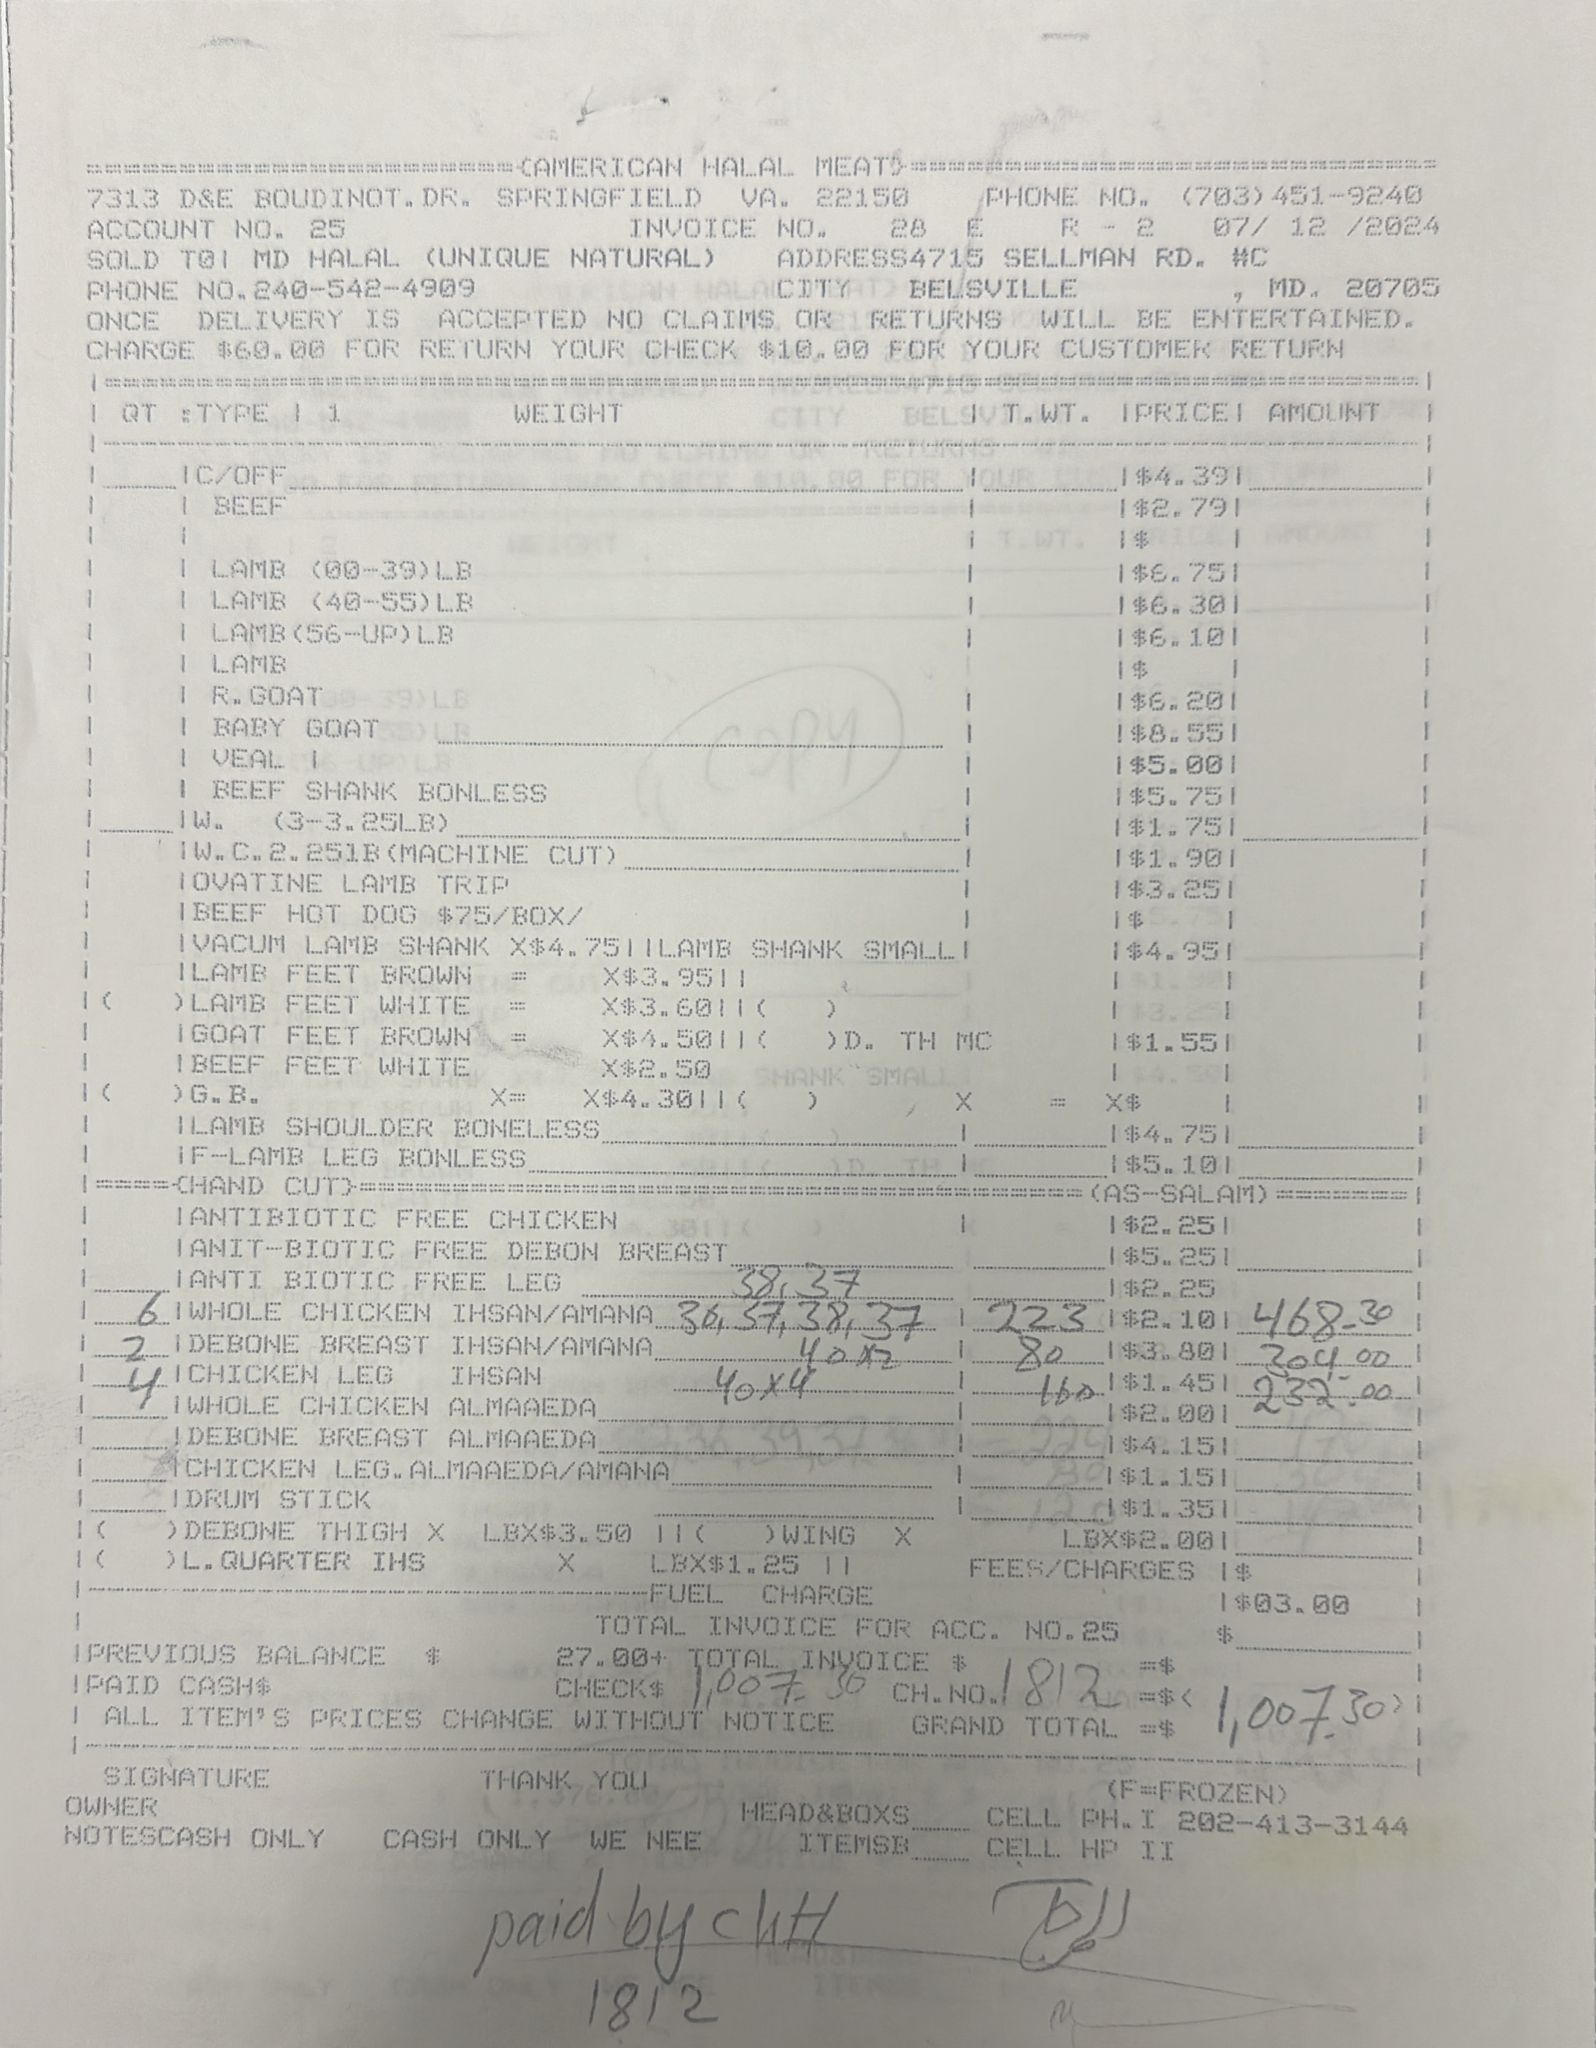 =======================(AMERICAN HALAL MEAT)============================
7313 D&E BOUDINOT.DR. SPRINGFIELD VA. 22150 PHONE NO. (703)451-9240
ACCOUNT NO. 25 INVOICE NO. 28 E R - 2 07/ 12 /2024
SOLD TO| MD HALAL (UNIQUE NATURAL) ADDRESS4715 SELLMAN RD. #C
PHONE NO.240-542-4909 CITY BELSVILLE , MD. 20705
ONCE DELIVERY IS ACCEPTED NO CLAIMS OR RETURNS WILL BE ENTERTAINED.
CHARGE $60.00 FOR RETURN YOUR CHECK $10.00 FOR YOUR CUSTOMER RETURN
| QT :TYPE | 1 WEIGHT | T.WT. |PRICE| AMOUNT |
|C/OFF |$4.39|
| BEEF |$2.79|
| |$ |
| LAMB (00-39)LB |$6.75|
| LAMB (40-55)LB |$6.30|
| LAMB(56-UP)LB |$6.10|
| LAMB |$ |
| R.GOAT |$6.20|
| BABY GOAT |$8.55|
| VEAL | |$5.00|
copy
| BEEF SHANK BONLESS |$5.75|
|W. (3-3.25LB) |$1.75|
|W.C.2.251B(MACHINE CUT) |$1.90|
|OVATINE LAMB TRIP |$3.25|
|BEEF HOT DOG $75/BOX/ |$ |
|VACUM LAMB SHANK X$4.75||LAMB SHANK SMALL| |$4.95|
|LAMB FEET BROWN = X$3.95||
|( )LAMB FEET WHITE = X$3.60||( )
|GOAT FEET BROWN = X$4.50||( )D. TH MC |$1.55|
|BEEF FEET WHITE X$2.50
|( )G.B. X= X$4.30||( ) X = X$ |
|LAMB SHOULDER BONELESS |$4.75|
|F-LAMB LEG BONLESS |$5.10|
|=====(HAND CUT)=======================================(AS-SALAM)=======|
|ANTIBIOTIC FREE CHICKEN |$2.25|
|ANIT-BIOTIC FREE DEBON BREAST |$5.25|
|ANTI BIOTIC FREE LEG 38,37 |$2.25
6 |WHOLE CHICKEN IHSAN/AMANA 36,37,38,37 | 223 |$2.10| 468.30
2 |DEBONE BREAST IHSAN/AMANA 40x2 | 80 |$3.80| 304.00
4 |CHICKEN LEG IHSAN 40x4 | 160 |$1.45| 232.00
|WHOLE CHICKEN ALMAAEDA |$2.00|
|DEBONE BREAST ALMAAEDA |$4.15|
|CHICKEN LEG.ALMAAEDA/AMANA |$1.15|
|DRUM STICK |$1.35|
|( )DEBONE THIGH X LBX$3.50 ||( )WING X LBX$2.00|
|( )L.QUARTER IHS X LBX$1.25 || FEES/CHARGES |$
FUEL CHARGE |$03.00
TOTAL INVOICE FOR ACC. NO.25 $
|PREVIOUS BALANCE $ 27.00+ TOTAL INVOICE $ =$
|PAID CASH$ CHECK$ 1,007.30 CH.NO. 1812 =$( 1,007.30)
| ALL ITEM'S PRICES CHANGE WITHOUT NOTICE GRAND TOTAL =$
SIGNATURE THANK YOU (F=FROZEN)
OWNER HEAD&BOXS CELL PH.I 202-413-3144
NOTESCASH ONLY CASH ONLY WE NEE ITEMSB CELL HP II
paid by
1812